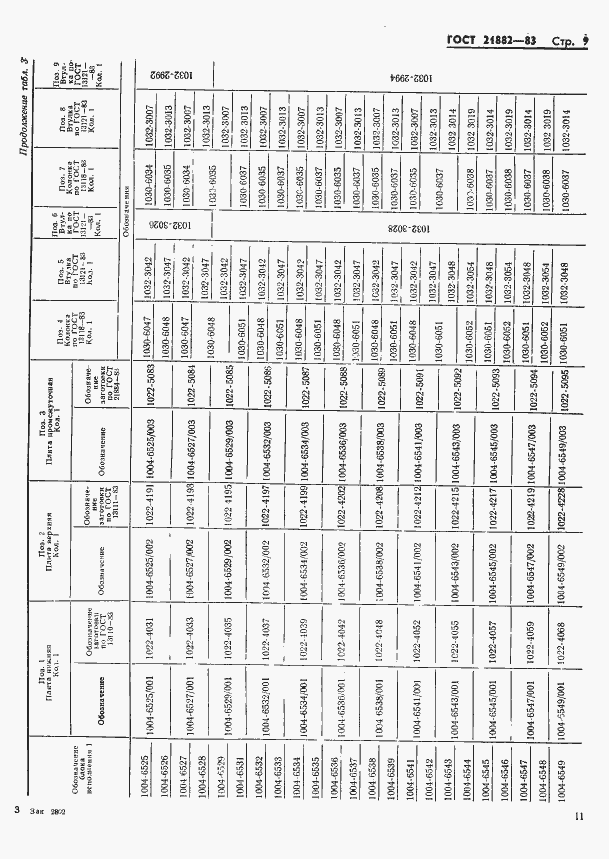 ГОСТ 21882—83 Стр. 9
Продолжение табл. 3
Обозначение блока исполнения 1
Поз. 1
Плита нижняя
Кол. 1
Поз. 2
Плита верхняя
Кол. 1
Поз. 3
Плита промежуточная
Кол. 1
Поз. 4
Колонка
по ГОСТ
13118—83
Кол. 1
Поз. 5
Втулка
по ГОСТ
13121—83
Кол. 1
Поз. 6
Втул-
ка по
ГОСТ
13121—
—83
Кол. 1
Поз. 7
Колонка
по ГОСТ
13118—83
Кол. 1
Поз. 8
Втулка
по ГОСТ
13121—83
Кол. 1
Поз. 9
Втул-
ка по
ГОСТ
13121—
—83
Кол. 1
Обозначение
Обозначение
заготовки
по ГОСТ
13110—83
Обозначение
Обозначе-
ние
заготовки
по ГОСТ
13111—83
Обозначение
Обозначе-
ние
заготовки
по ГОСТ
21884—83
Обозначения
1004-6525 1004-6525/001 1022-4031 1004-6525/002 1022-4191 1004-6525/003 1022-5083 1030-6047 1032-3042 1032-3026 1030-6034 1032-3007 1032-2992
1004-6526 1030-6048 1032-3047 1030-6035 1032-3013
1004-6527 1004-6527/001 1022-4033 1004-6527/002 1022-4193 1004-6527/003 1022-5084 1030-6047 1032-3042 1030-6034 1032-3007
1004-6528 1030-6048 1032-3047 1030-6035 1032-3013
1004-6529 1004-6529/001 1022-4035 1004-6529/002 1022-4195 1004-6529/003 1022-5085 1032-3042 1032-3028 1032-3007 1032-2994
1004-6531 1030-6051 1032-3047 1030-6037 1032-3013
1004-6532 1004-6532/001 1022-4037 1004-6532/002 1022-4197 1004-6532/003 1022-5086 1030-6048 1032-3042 1030-6035 1032-3007
1004-6533 1030-6051 1032-3047 1030-6037 1032-3013
1004-6534 1004-6534/001 1022-4039 1004-6534/002 1022-4199 1004-6534/003 1022-5087 1030-6048 1032-3042 1030-6035 1032-3007
1004-6535 1030-6051 1032-3047 1030-6037 1032-3013
1004-6536 1004-6536/001 1022-4042 1004-6536/002 1022-4202 1004-6536/003 1022-5088 1030-6048 1032-3042 1030-6035 1032-3007
1004-6537 1030-6051 1032-3047 1030-6037 1032-3013
1004-6538 1004-6538/001 1022-4048 1004-6538/002 1022-4208 1004-6538/003 1022-5089 1030-6048 1032-3042 1030-6035 1032-3007
1004-6539 1030-6051 1032-3047 1030-6037 1032-3013
1004-6541 1004-6541/001 1022-4052 1004-6541/002 1022-4212 1004-6541/003 1022-5091 1030-6048 1032-3042 1030-6035 1032-3007
1004-6542 1030-6051 1032-3047 1030-6037 1032-3013
1004-6543 1004-6543/001 1022-4055 1004-6543/002 1022-4215 1004-6543/003 1022-5092 1032-3048 1032-3014
1004-6544 1030-6052 1032-3054 1030-6038 1032-3019
1004-6545 1004-6545/001 1022-4057 1004-6545/002 1022-4217 1004-6545/003 1022-5093 1030-6051 1032-3048 1030-6037 1032-3014
1004-6546 1030-6052 1032-3054 1030-6038 1032-3019
1004-6547 1004-6547/001 1022-4059 1004-6547/002 1022-4219 1004-6547/003 1022-5094 1030-6051 1032-3048 1030-6037 1032-3014
1004-6548 1030-6052 1032-3054 1030-6038 1032-3019
1004-6549 1004-6549/001 1022-4068 1004-6549/002 1022-4228 1004-6549/003 1022-5095 1030-6051 1032-3048 1030-6037 1032-3014
3 Зак 2802
11